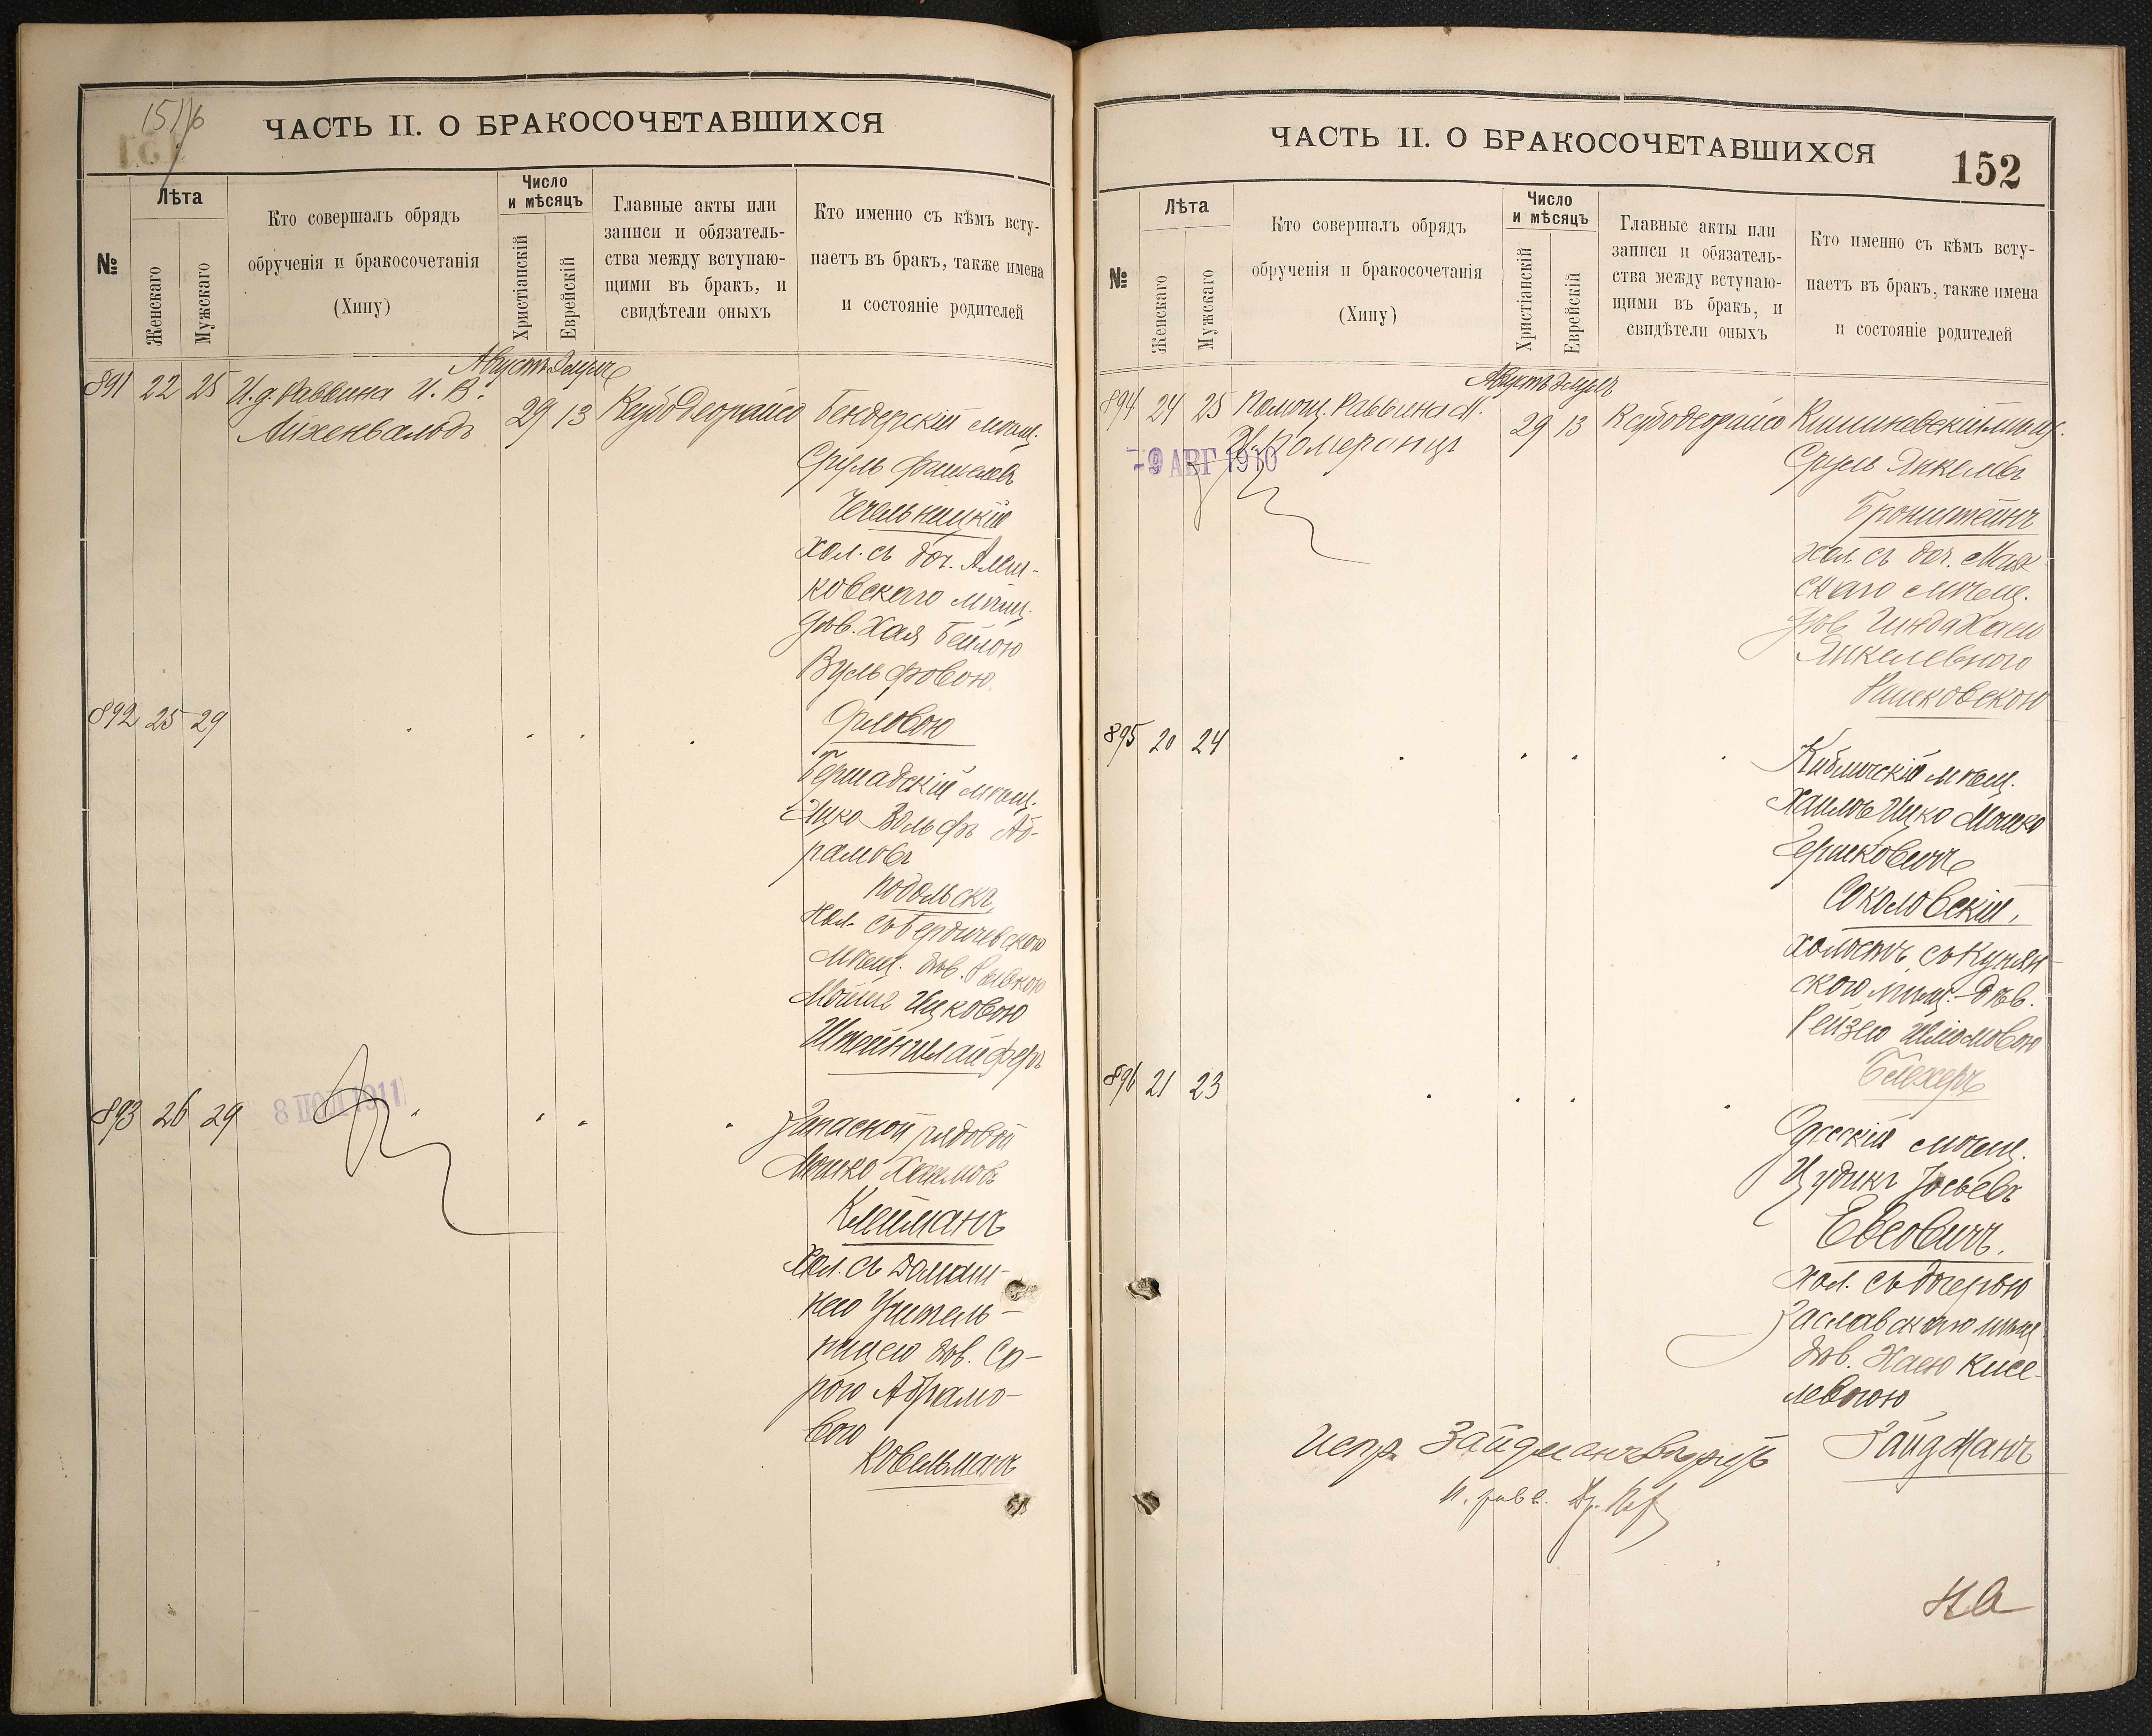 151/6
ЧАСТЬ II. О БРАКОСОЧЕТАВШИХСЯ
№
Лѣта
Женскаго
Мужскаго
Кто совершалъ обрядъ
обрученія и бракосочетанія
(Хипу)
Число
и мѣсяцъ
Христіанскій
Еврейскій
Главные акты или
записи и обязатель-
ства между вступаю-
щими въ бракъ, и
свидѣтели оныхъ
Кто именно съ кѣмъ всту-
паетъ въ бракъ, также имена
и состояніе родителей
Августъ Элулъ
891 22 25 И. д. Раввина И. В.
Айхенвальдъ
29 13
Бендерскій мѣщ.
Сруль Фишелевъ
Чечельницкій
хол. съ доч. Алеш-
ковскаго мѣщ.
дѣв. Хая Бейлою
Вульфовою
Орловою
892 25 29
Бершадскій мѣщ.
Ицко Вольфъ Аб-
рамовъ
Подольскъ,
хол. съ Бердичевскою
мѣщ. дѣв. Рывкою
Ицковою
Штейншлайферъ
893 26 29
8 ІЮЛ 1911
Запасной рядовой
Мошко Хаимовъ
Клейманъ
Хол. съ Домаш-
нею Учитель-
ницею дѣв. Са-
рою Абрамо-
вою
Ковельманъ
ЧАСТЬ II. О БРАКОСОЧЕТАВШИХСЯ
152
№
Лѣта
Женскаго
Мужскаго
Кто совершалъ обрядъ
обрученія и бракосочетанія
(Хипу)
Число
и мѣсяцъ
Христіанскій
Еврейскій
Главные акты или
записи и обязатель-
ства между вступаю-
щими въ бракъ, и
свидѣтели оныхъ
Кто именно съ кѣмъ всту-
паетъ въ бракъ, также имена
и состояніе родителей
Августъ Элулъ
894 24 25 Помощ. Раввина М.
Померанцъ
-9 АВГ 1910
29 13
Кишиневскій мѣщ.
Сруль Янкелевъ
Бронштейнъ
хол. съ доч. Маяк
скаго мѣщ.
дѣв. Гинда Хаею
Янкелевною
Рашковскою
895 20 24
Кибличскій мѣщ.
Хаимъ Ицко Мошко
Гершковичъ
Соколовскій,
холостъ, съ Купян-
скою мѣщ. дѣв.
Рейзею Шліомовою
896 21 23
Одесскій мѣщ.
Цудикъ Іосьевъ
Евсовичъ.
Хол. съ дочерью
Заславскаго мѣщ.
дѣв. Хаею Кисе-
левною
Зайдманъ
Испр. Зайдманъ вѣрно